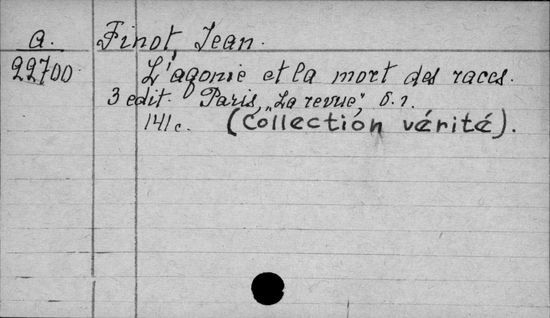 a. Finot, Jean.
22700 L'agonie et la mort des races.
3 edit. Paris, „La revue", б.г.
141 c. (Collection vérité).